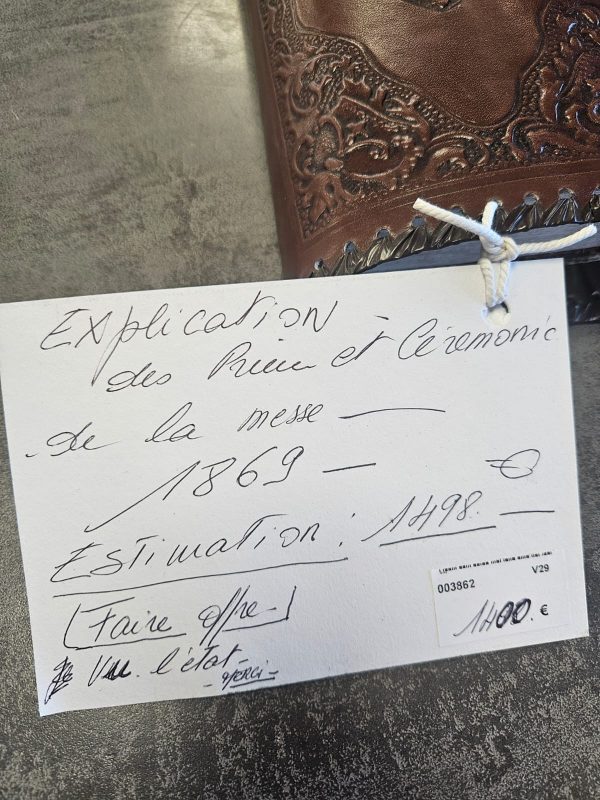 EXplication
des Prieres et Céremonie
de la messe —
1869 — €
Estimation : 1498. —
(Faire offre)
Vu l'état
- merci -
003862 V29
1400. €